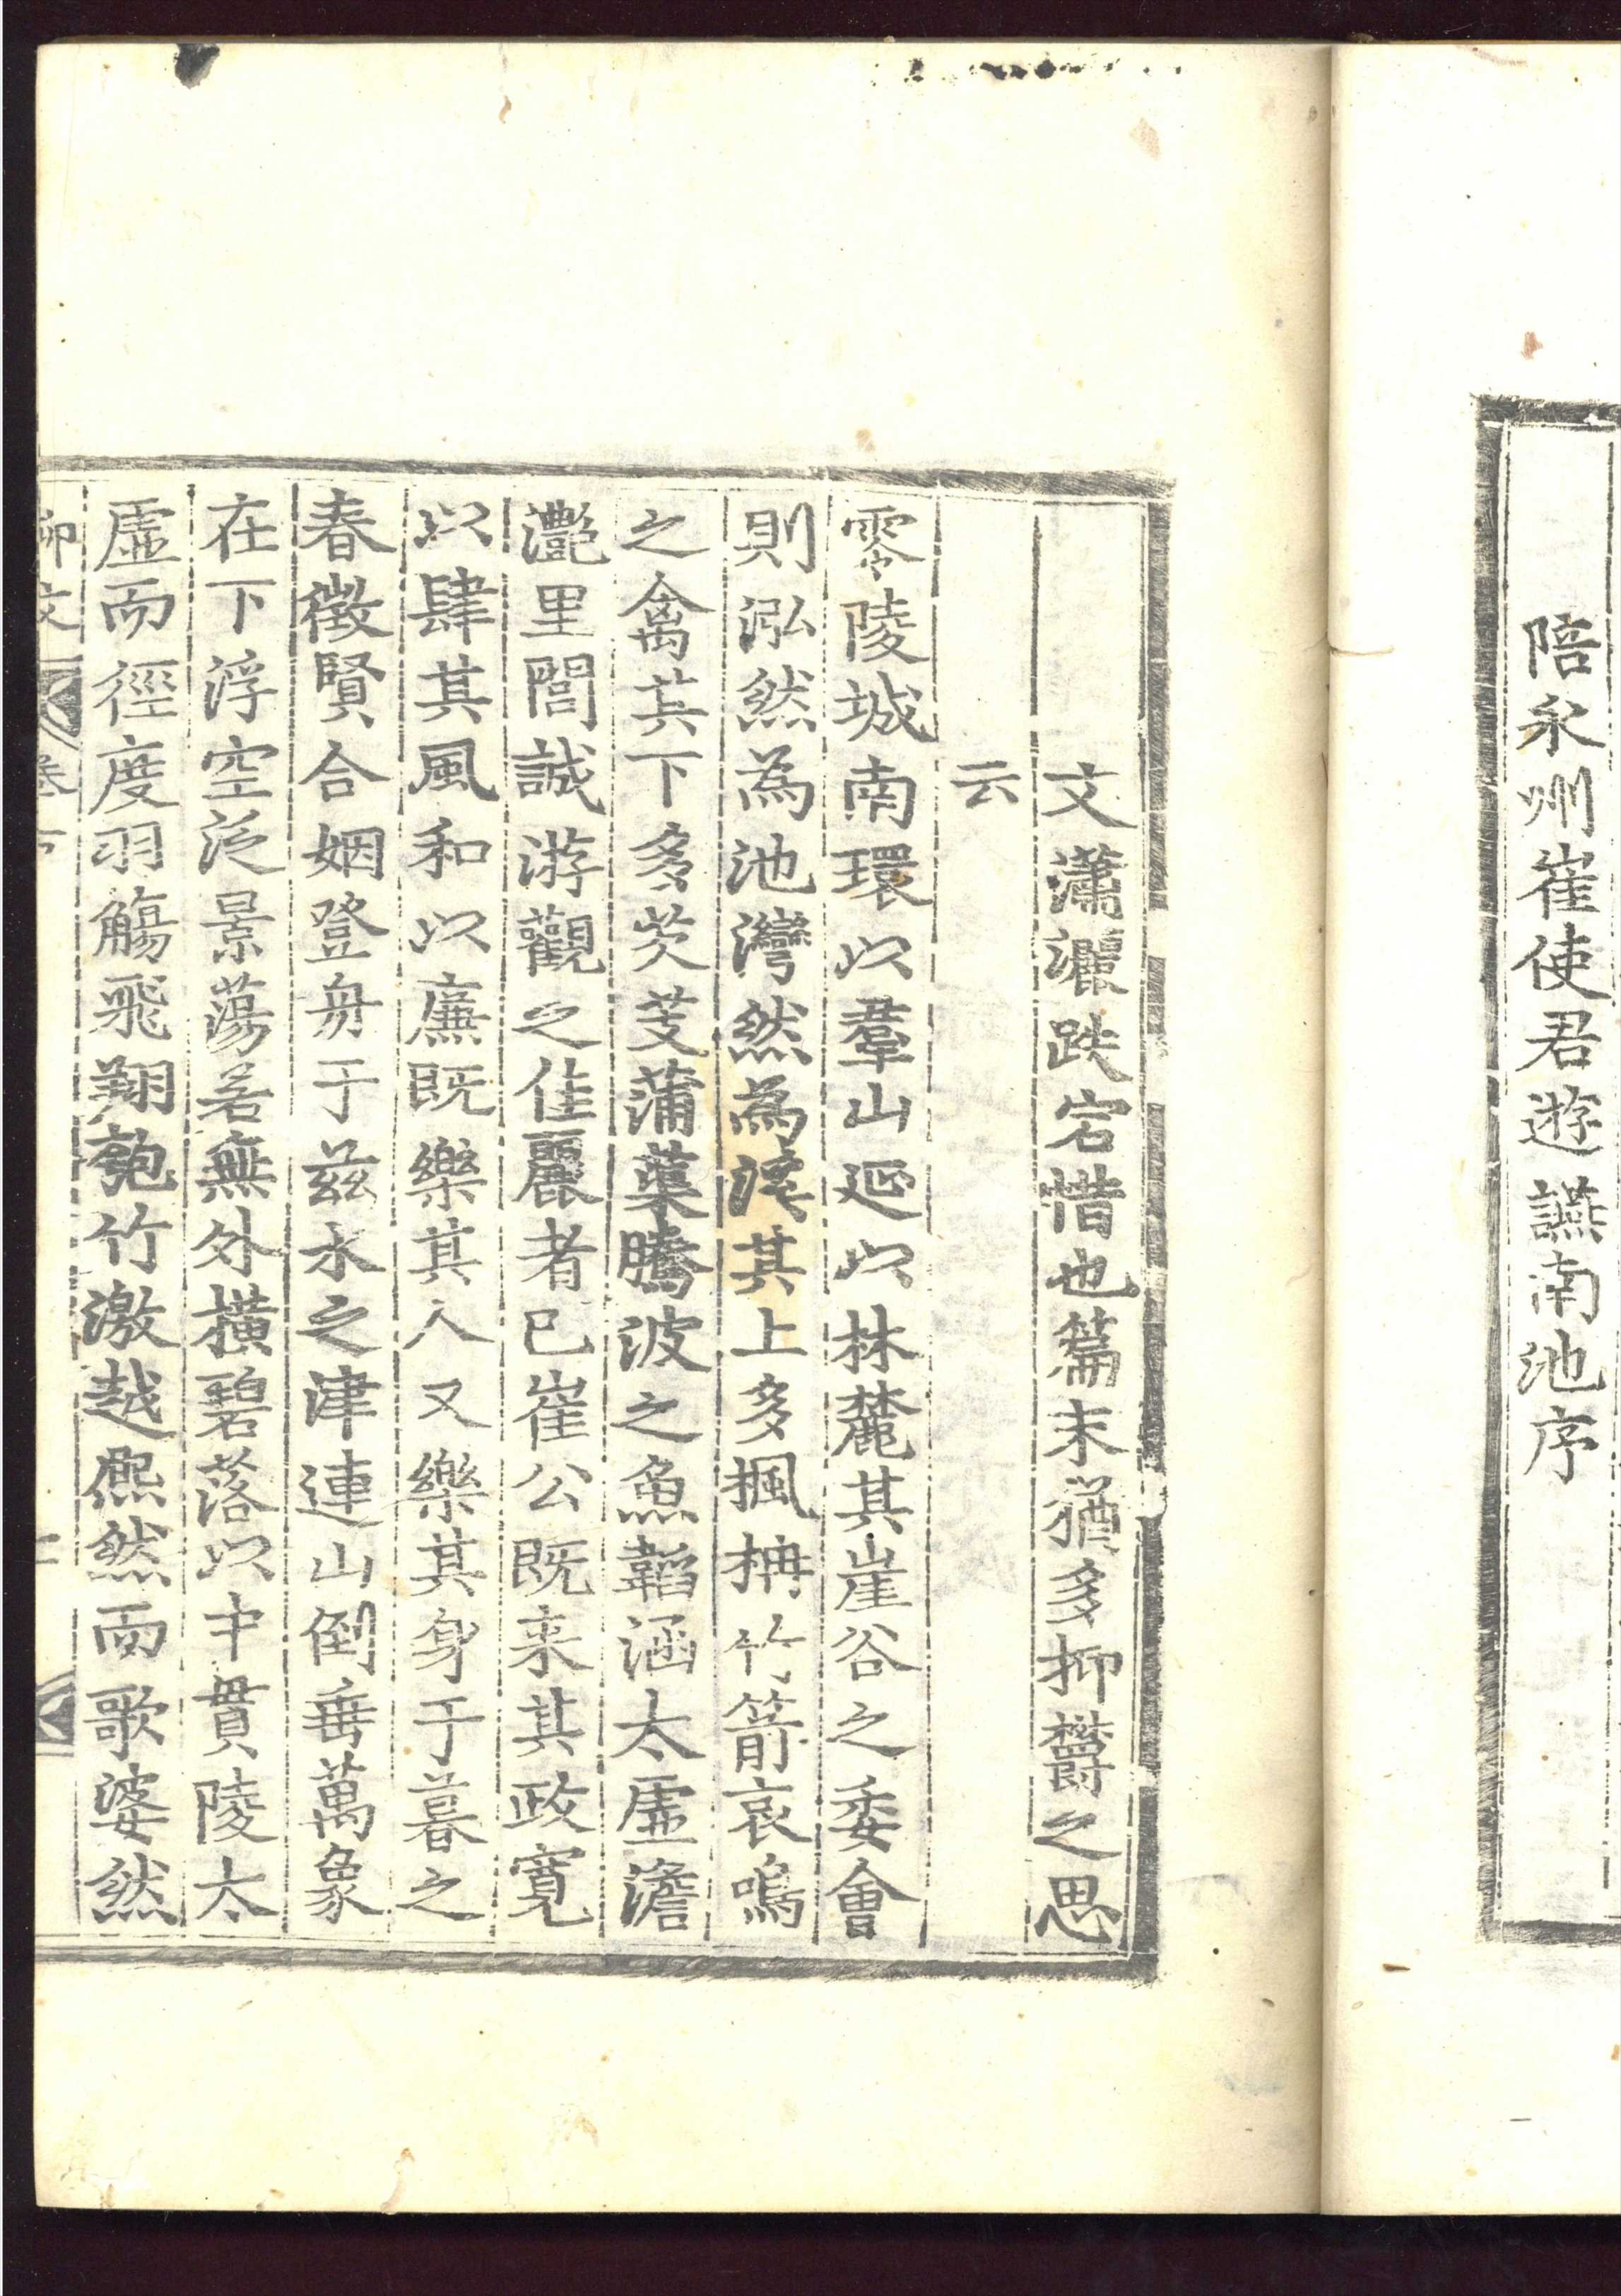 陪永州崔使君遊讌南池序
文瀟灑跌宕惜也篇末猶多抑欝之思
云
零陵城南環以羣山延以林麓其崖谷之委會
則泓然為池灣然為溪其上多楓柟竹箭哀鳴
之禽其下多芡芰蒲蕖騰波之魚韜涵太虛澹
灩里閭誠游觀之佳麗者已崔公既来其政寬
以肆其風和以廉既樂其人又樂其身于暮之
春徵賢合姻登舟于茲水之津連山倒垂萬象
在下浮空泛景蕩若無外橫碧落以中貫陵太
虛而徑度羽觴飛翔匏竹激越熈然而歌婆然
柳文 卷下